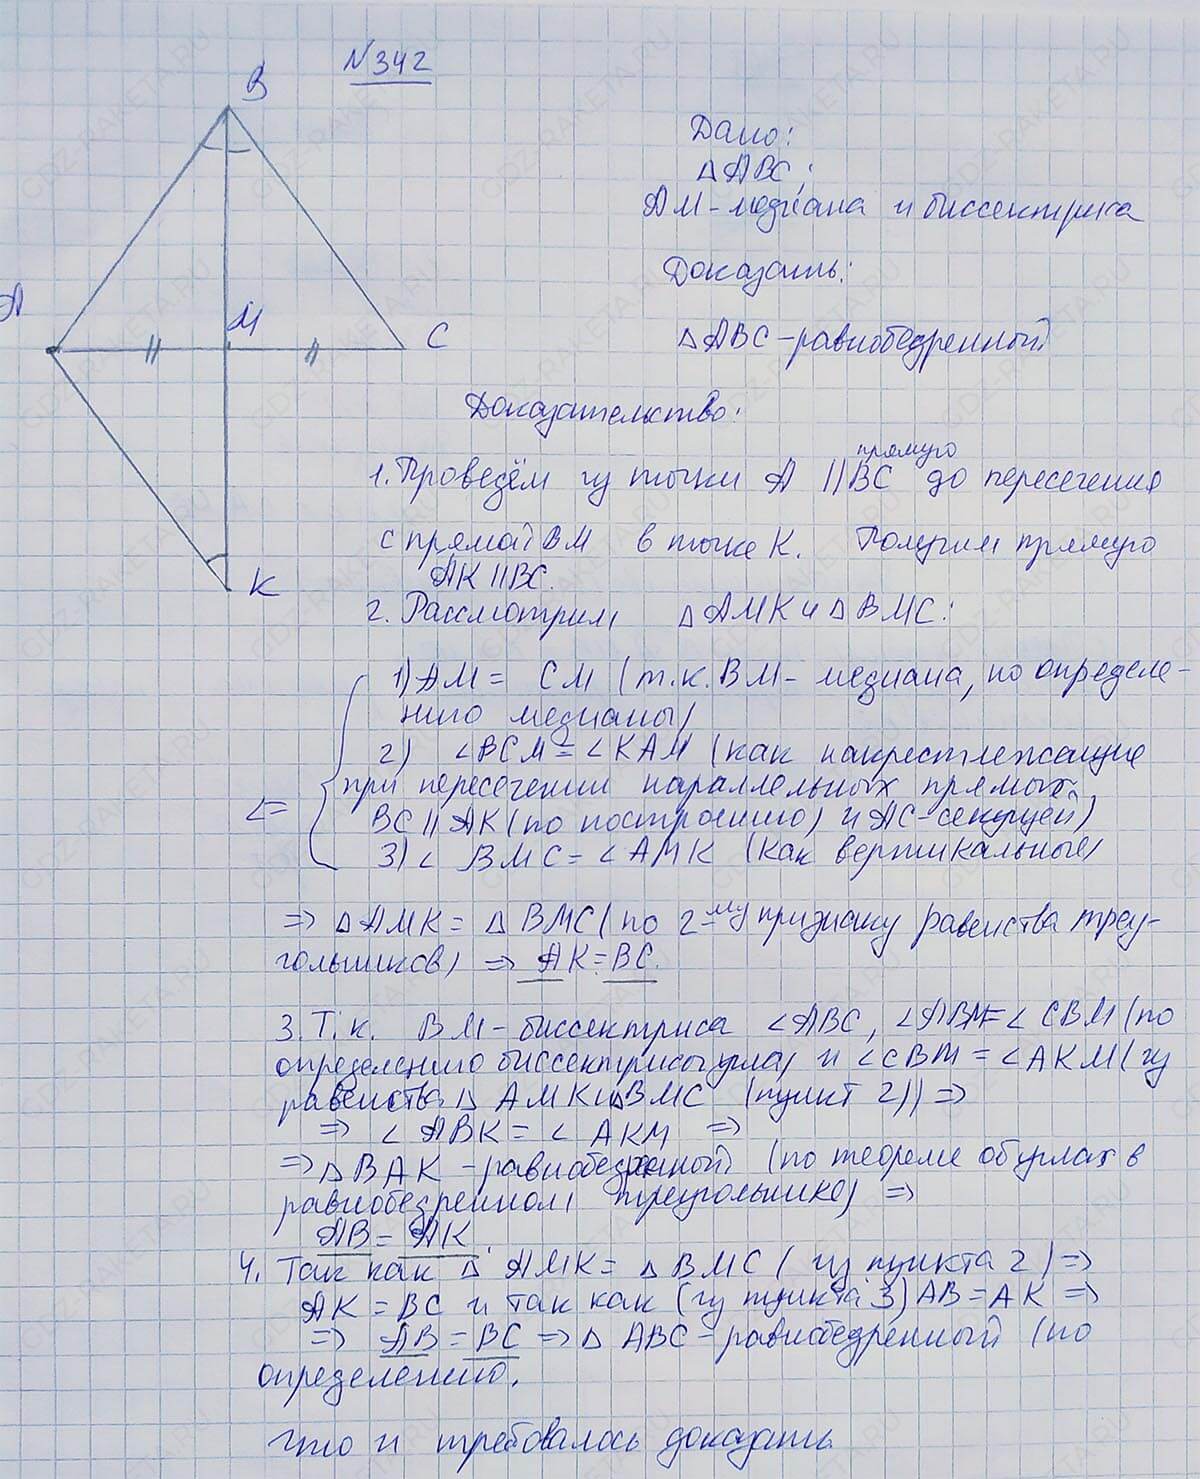 N 342
B
Дано:
△ ABC;
AM - медиана и биссектриса
Доказать:
A
M
C
△ ABC - равнобедренный
Доказательство:
прямую
1. Проведём из точки A || BC до пересечения
с прямой BM в точке K. Получим прямую
AK || BC.
K
2. Рассмотрим △ AMK и △ BMC:
1) AM = CM (т.к. BM - медиана, по определе-
нию медианы)
2) ∠BCM = ∠KAM (как накрестлежащие
при пересечении параллельных прямых
BC || AK (по построению) и AC - секущей)
3) ∠ BMC = ∠ AMK (как вертикальные)
⇒ △ AMK = △ BMC (по 2-му признаку равенства треу-
гольников) ⇒ AK = BC.
3. Т.к. BM - биссектриса ∠ABC, ∠ABM = ∠ CBM (по
определению биссектрисы угла) и ∠CBM = ∠AKM (из
равенства △ AMK и △BMC (пункт 2)) ⇒
⇒ ∠ ABK = ∠ AKM ⇒
⇒ △ BAK - равнобедренный (по теореме об углах в
равнобедренном треугольнике) ⇒
AB = AK.
4. Так как △ AMK = △ BMC (из пункта 2) ⇒
AK = BC и так как (из пункта 3) AB = AK ⇒
⇒ AB = BC ⇒ △ ABC - равнобедренный (по
определению.
Что и требовалось доказать
GDZ-RAKETA.RU